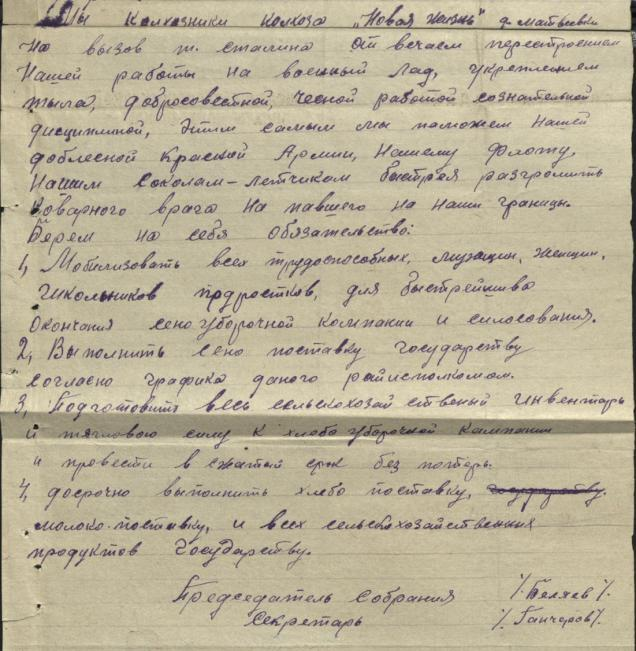 Мы Колхозники колхоза „Новая жизнь" д. Матвеевки
На вызов т. сталина отвечаем перестроением
Нашей работы на военный лад, укреплением
тыла, добросовестной, чесной работой сознательной
дисциплиной, Этим самым мы поможем Нашей
доблесной Красной Армии, Нашему Флоту,
Нашим Соколам-летчиком быстрея разгромить
Коварного врага На павшего на наши границы.
Берем на себя обязательство:
1, Мобилизовать всех трудоспособных, мужщин, женщин,
Школьников подростков, для быстрейшиво
Окончания сено уборочной компании и силосования.
2, Выполнить сено поставку государству
согласно графика даного райисполкомом.
3, Подготовить весь сельскохозайственый инвентарь
и тягловою силу к хлебо уборочной кампании
и провести в сжатый срок без потерь.
4, досрочно выполнить хлебо поставку, государству.
молоко-поставку, и всех сельскохозайственних
продуктов Государству.
Председатель собрания /Беляев/.
Секретарь /Ганчеров/.